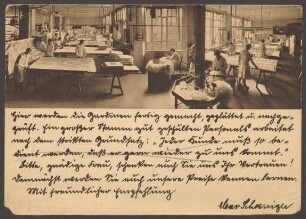 Hier werden die Gardinen fertig gemacht, geglättet u. nachge-
prüft. Ein großer Stamm gut geschulten Personals arbeitet
nach dem strikten Grundsatz: „Jeder Kunde muß so be-
dient werden, daß er gern wieder zu uns kommt."
Bitte, gnädige Frau, schenken auch Sie uns Ihr Vertrauen!
Demnächst werden Sie auch unsere Preise kennen lernen.
Mit freundlicher Empfehlung